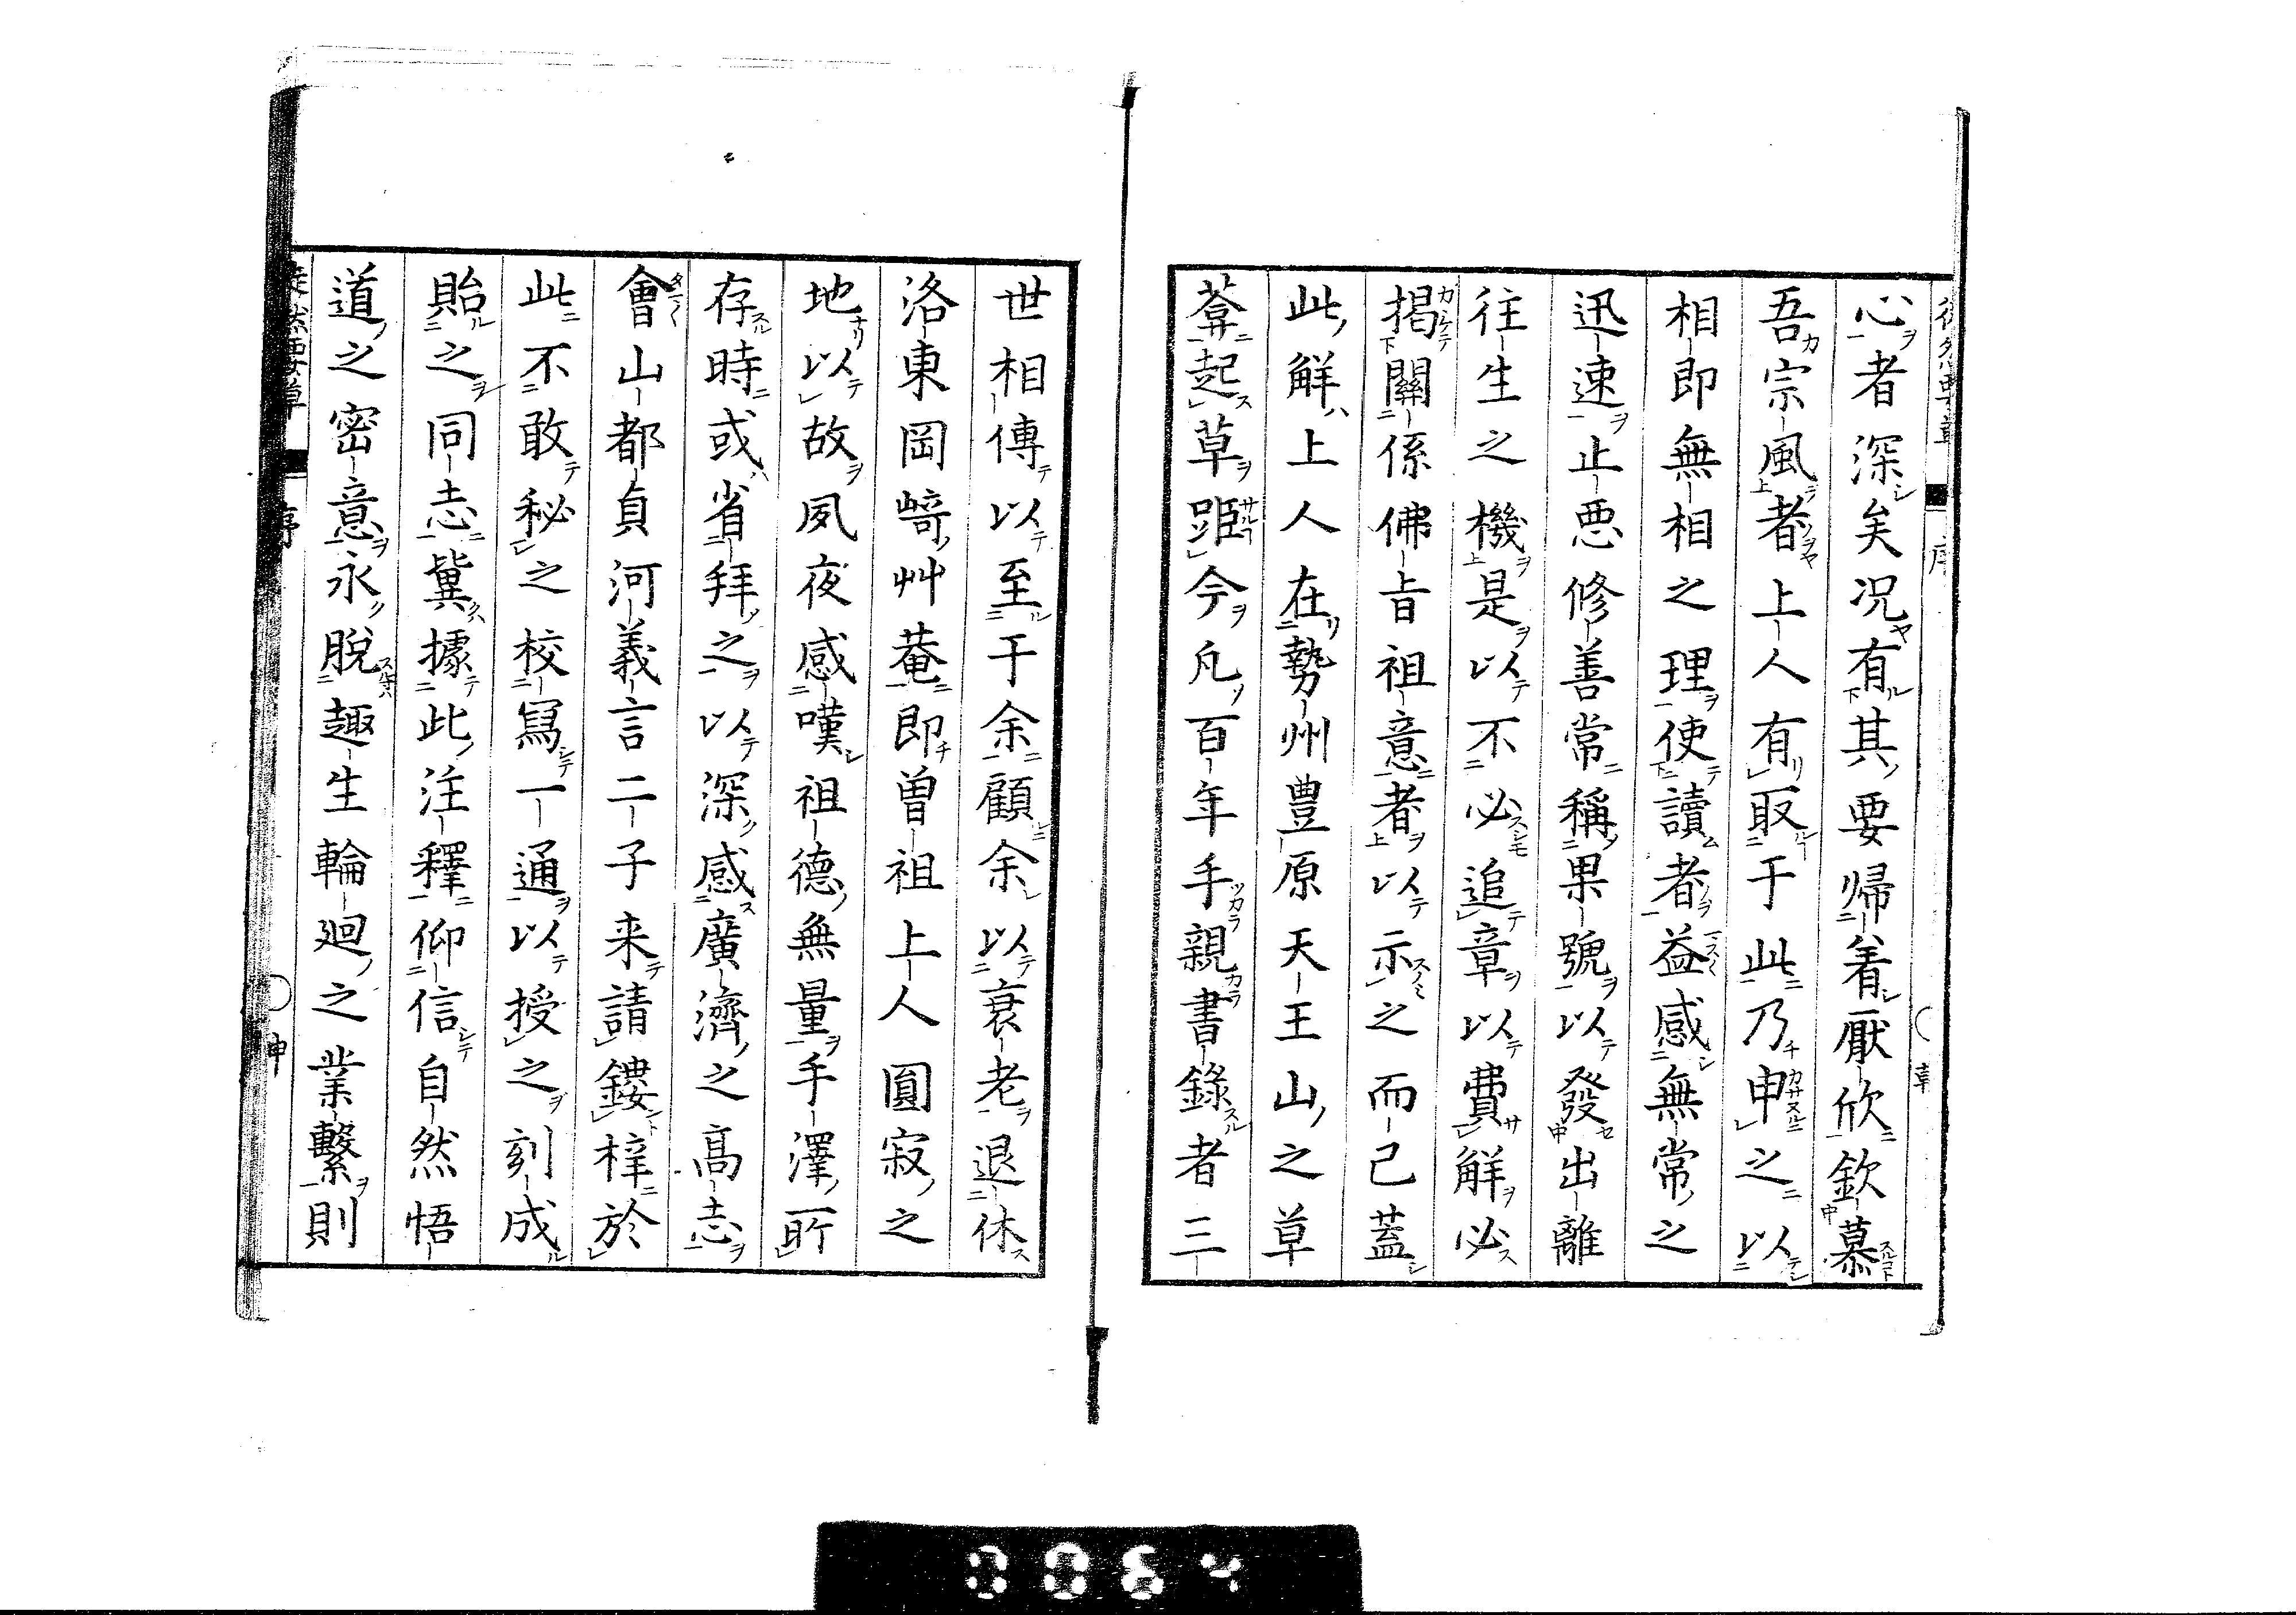 心者深矣况有其要帰着厭欣欽慕
吾宗風者上人有取于此乃申之以
相即無相之理使讀者益感無常之
迅速止悪修善常稱果號以發出離
往生之機是以不必追章以費解必
揭關係佛旨祖意者以示之而己蓋
此解上人在勢州豊原天王山之草
菴起草距今凡百年手親書錄者三
世相傳以至于余顧余以衰老退休
洛東岡﨑艸菴即曽祖上人圓寂之
地以故夙夜感嘆祖德無量手澤所
存時或省拜之以深感廣濟之高志
會山都貞河義言二子来請鏤梓於
此不敢秘之校寫一通以授之刻成
貽之同志冀據此注釋仰信自然悟
道之密意永脫趣生輪廻之業繫則